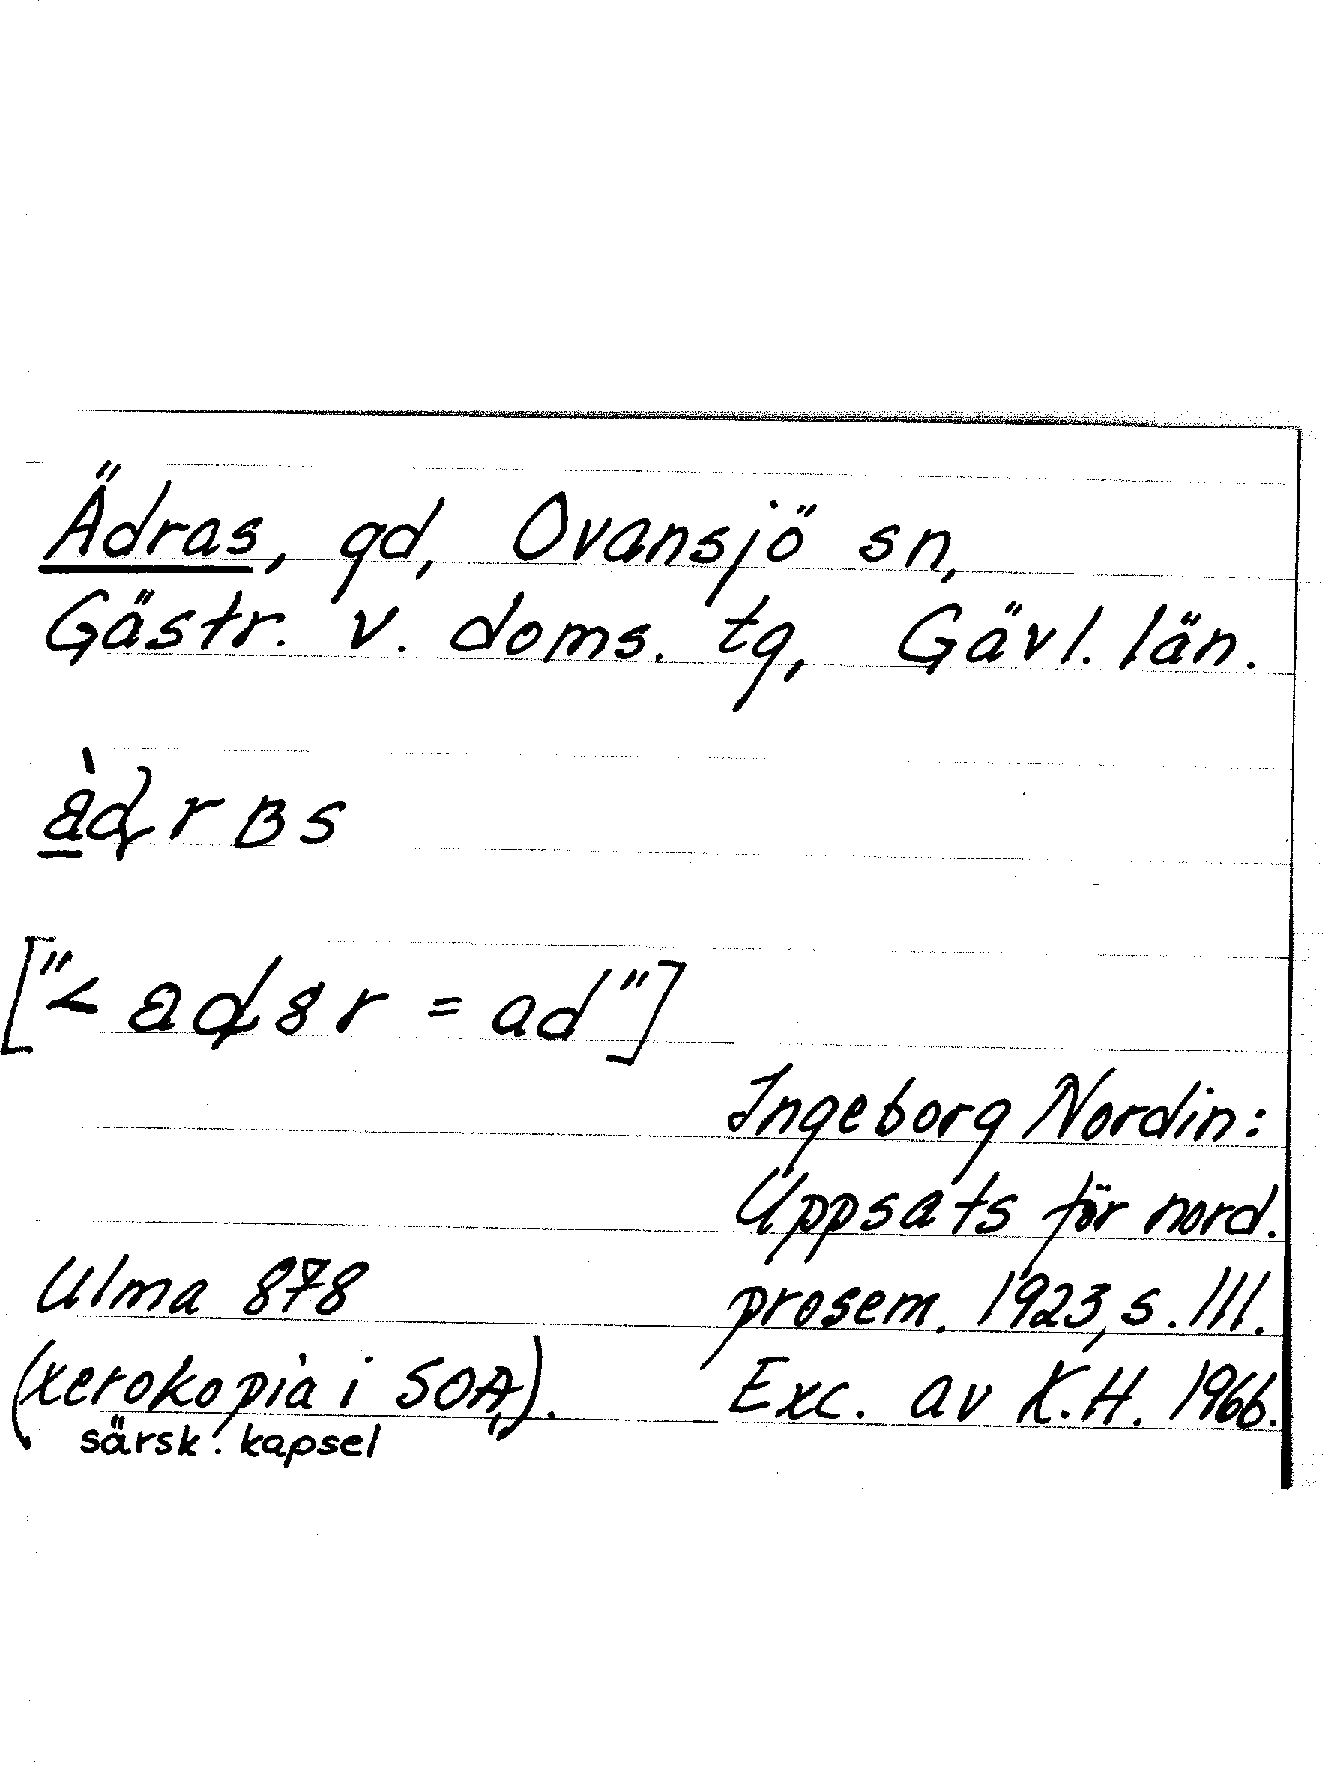 Ädras, gd, Ovansjö sn,
Gästr. v. doms. tg, Gävl. län.
["< = ad"]
Ingeborg Nordin:
Uppsats för nord.
prosem. 1923, s. 111.
Exc. av K.H. 1966.
Ulma 878
(xerokopia i SOA,).
särsk. kapsel